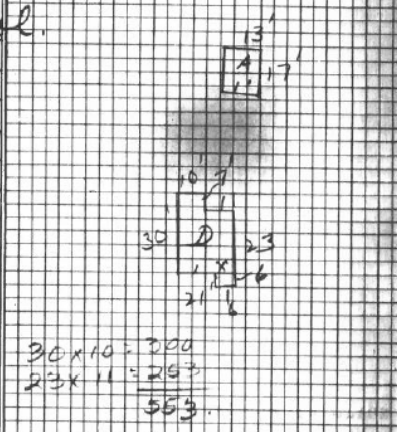 l.
13'
A 17'
1'
10' 7'
1
30 D 23
1 X 6
21' 1
6
30 x 10 = 300
23 x 11 = 253
553.